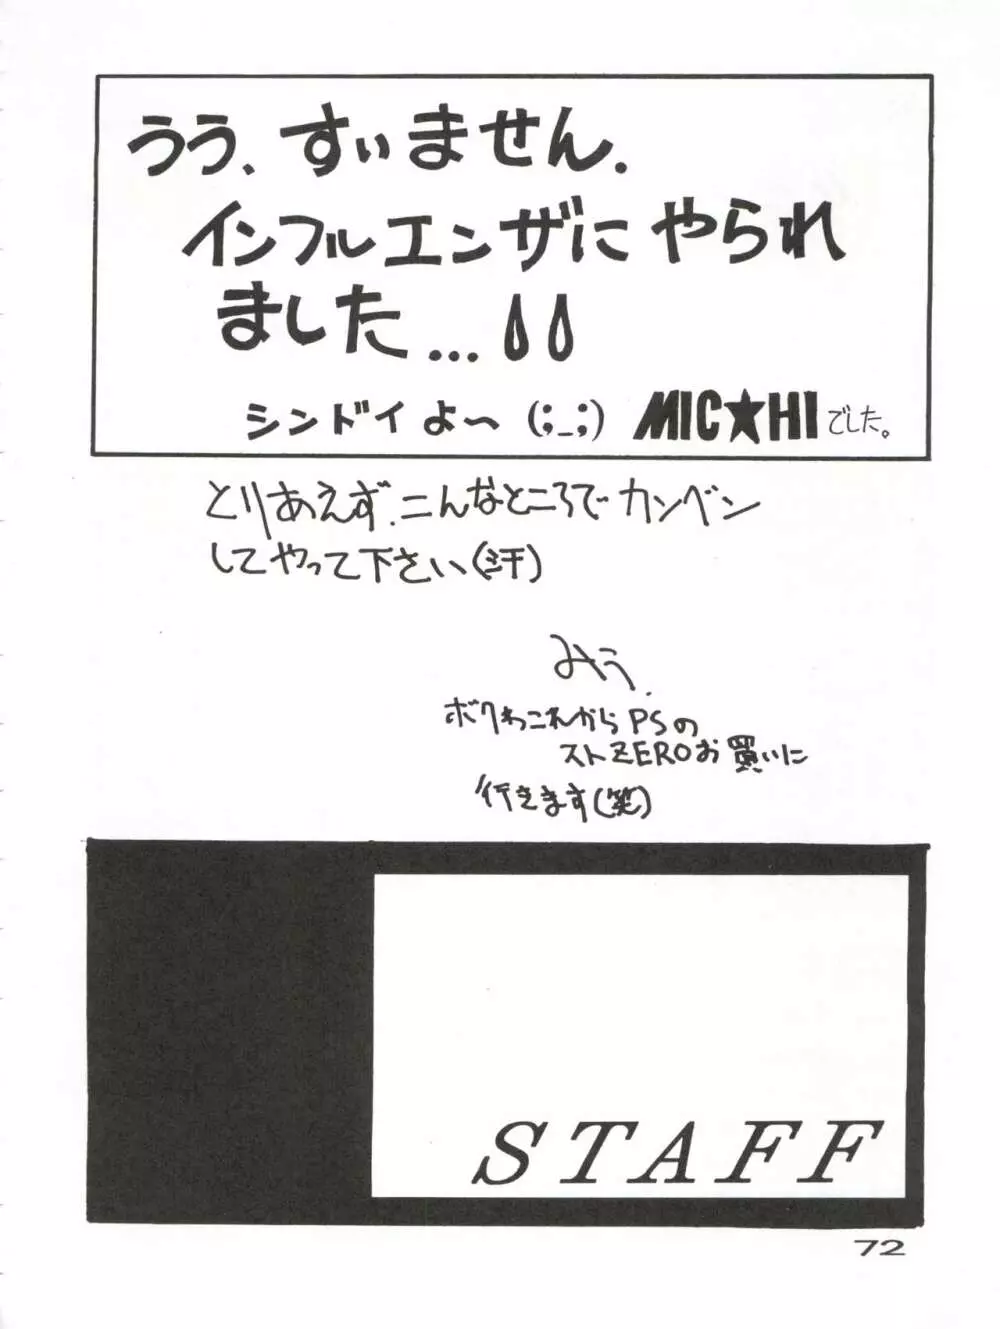 うう、すいません.
インフルエンザに やられ
ました...
シンドイよ〜 (;_;) MIC★HIでした。
とりあえず、こんなところで カンベン
してやって下さい(汗)
みう.
ボクわこれから PSの
ストZEROお買いに
行きます(笑)
STAFF
72